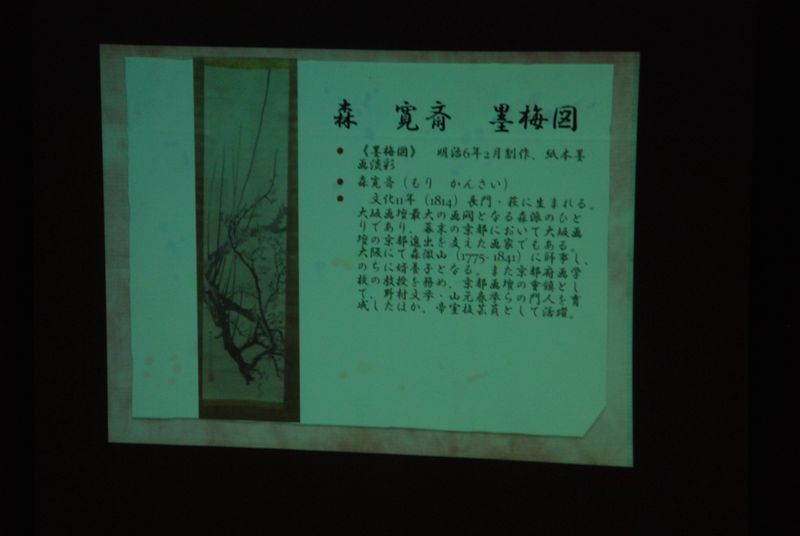 森 寛斎 墨梅図
• 《墨梅図》 明治6年2月制作、紙本墨
画淡彩
• 森寛斎（もり かんさい）
• 文化11年（1814）長門・萩に生まれる。
大坂画壇最大の画閥となる森派のひと
りであり、幕末の京都において大坂画
壇の京都進出を支えた画家でもある。
大阪にて森徹山（1775-1841）に師事し、
のちに婿養子となる。また京都府画学
校の教授を務め、京都画壇の重鎮とし
て、野村文挙・山元春挙らの門人を育
成したほか、帝室技芸員として活躍。